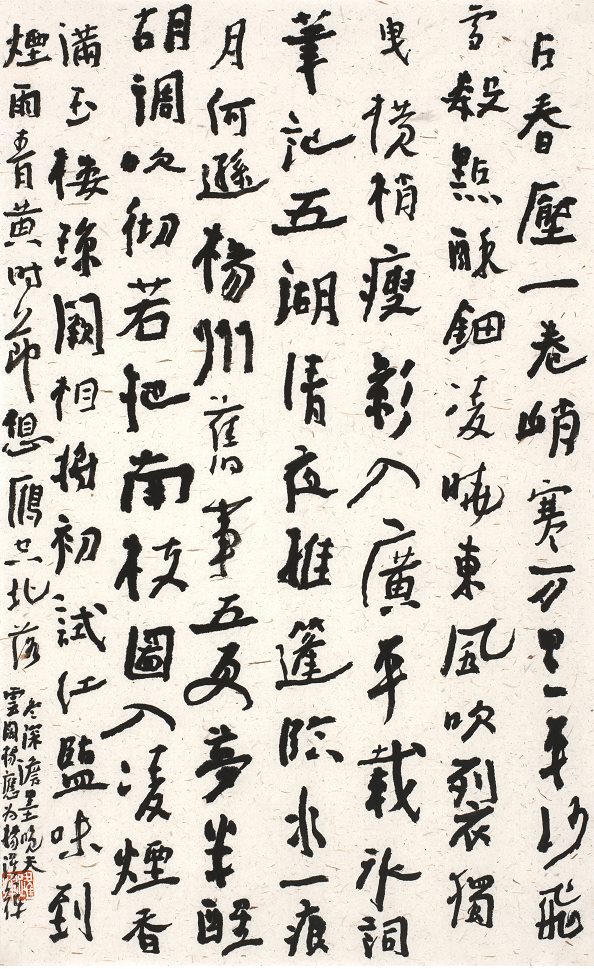 占春壓一卷峭寒万里平沙飛
雪數點酥鈿凌曉東風吹裂獨
曳橫梢瘦影入廣平載冰詞
筆記五湖清夜推篷臨水一痕
月何遜楊州舊事五更夢半醒
胡調吹徹若把南枝圖入凌煙香
滿玉樓瓊闕相將初試紅鹽味到
煙雨青黃時節想雁空北落
冬深澹墨晚天
雲闊